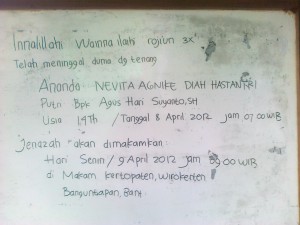 Innalillahi Wainna ilahi rojiun 3x
Telah meninggal dunia dg tenang
Ananda NEVITA AGNIKE DIAH HASTANTRI
Putri Bpk Agus Hari Suyanto, SH
Usia 14Th / Tanggal 8 April 2012 jam 07.00 WIB
Jenazah akan dimakamkan:
Hari Senin / 9 April 2012 jam 09.00 WIB
di Makam kertopaten, Wirokerten
Banguntapan, Bant